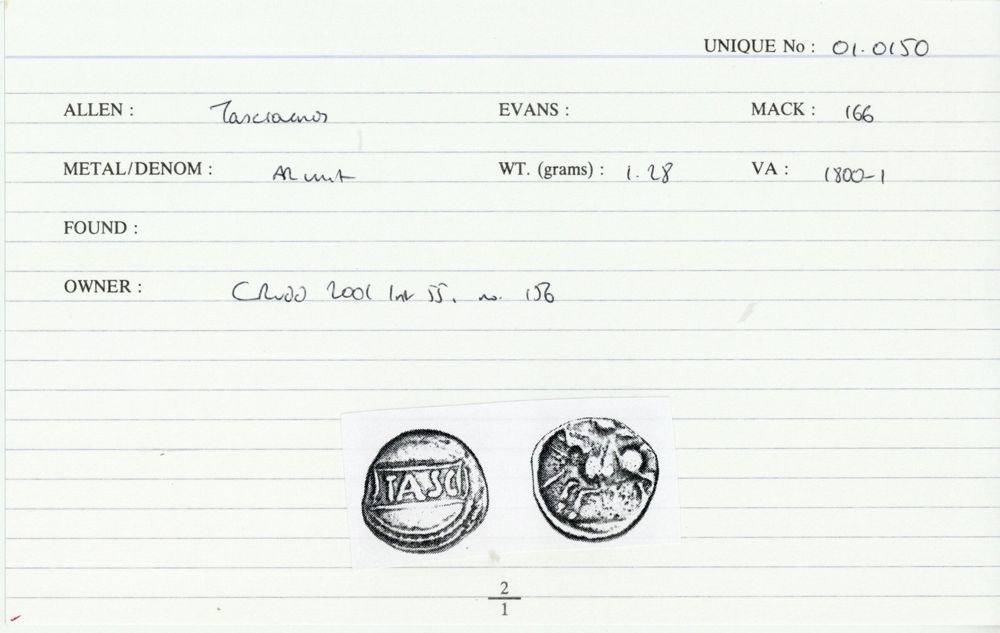 UNIQUE No : 01.0150
ALLEN : Tasciovanos EVANS : MACK : 166
METAL/DENOM : AR unit WT. (grams) : 1.28 VA : 1800-1
FOUND :
OWNER : CRudd 2001 list 55, no. 156
TASC
2
1